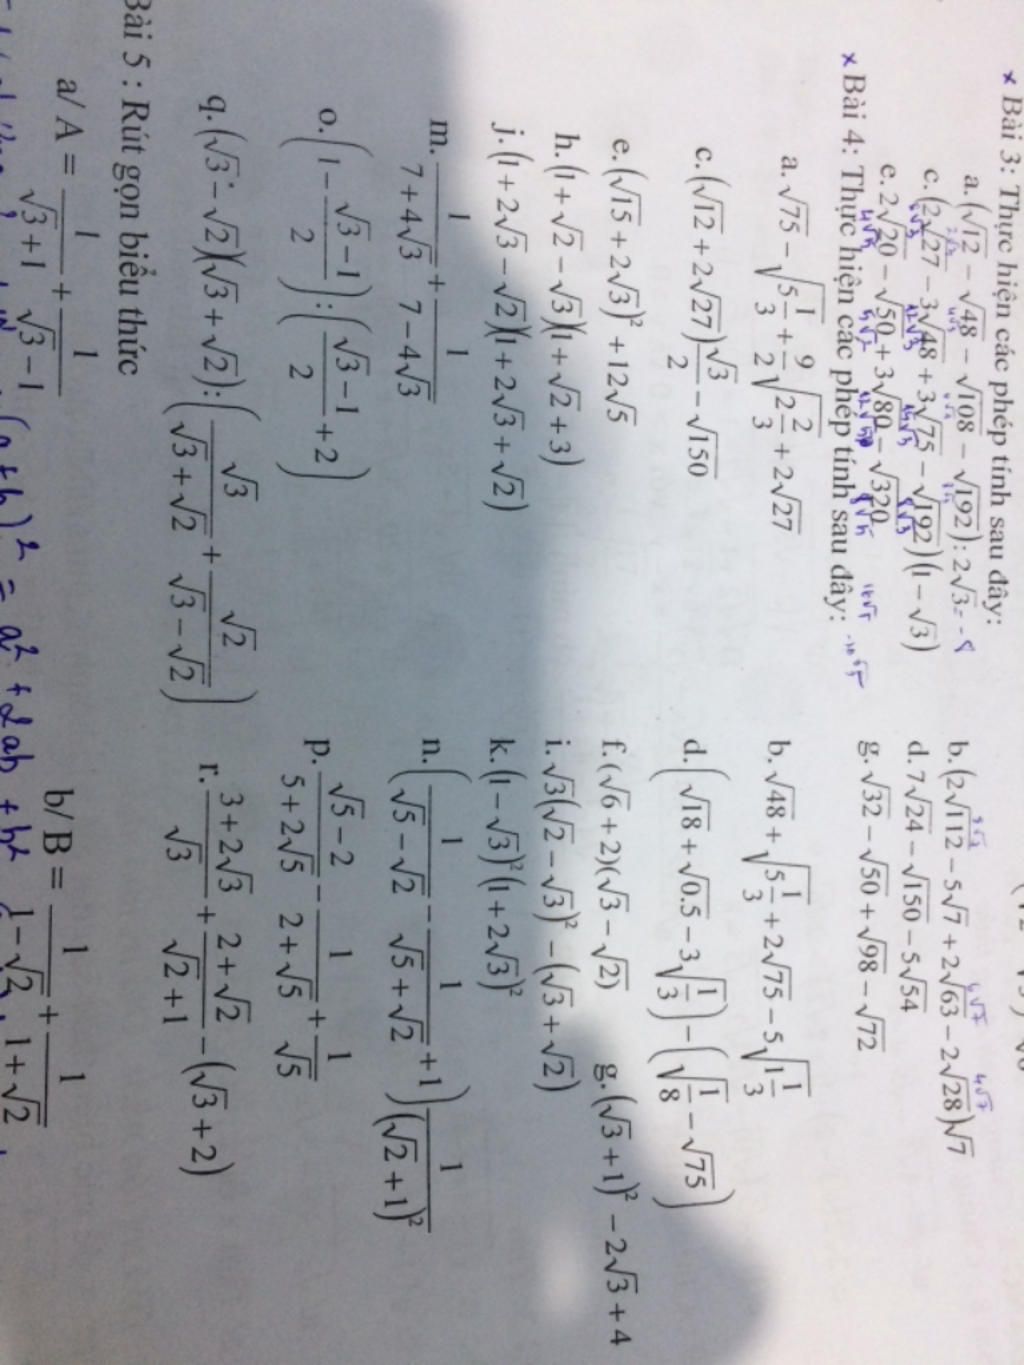 × Bài 3: Thực hiện các phép tính sau đây:
a. (√12 − √48 − √108 − √192) : 2√3 = −8 b. (2√112 − 5√7 + 2√63 − 2√28)√7
c. (2√27 − 3√48 + 3√75 − √192)(1 − √3) d. 7√24 − √150 − 5√54
e. 2√20 − √50 + 3√80 − √320 g. √32 − √50 + √98 − √72
× Bài 4: Thực hiện các phép tính sau đây:
a. √75 − √(5 1/3) + 9/2 √(2 2/3) + 2√27 b. √48 + √(5 1/3) + 2√75 − 5√(1 1/3)
c. (√12 + 2√27) √3/2 − √150 d. (√18 + √0.5 − 3√(1/3)) − (√(1/8) − √75)
e. (√15 + 2√3)² + 12√5 f. (√6 + 2)(√3 − √2) g. (√3 + 1)² − 2√3 + 4
h. (1 + √2 − √3)(1 + √2 + 3) i. √3(√2 − √3)² − (√3 + √2)
j. (1 + 2√3 − √2)(1 + 2√3 + √2) k. (1 − √3)²(1 + 2√3)²
m. 1/(7 + 4√3) + 1/(7 − 4√3) n. (1/(√5 − √2) − 1/(√5 + √2) + 1) 1/(√2 + 1)²
o. (1 − (√3 − 1)/2) : ((√3 − 1)/2 + 2) p. (√5 − 2)/(5 + 2√5) − 1/(2 + √5) + 1/√5
q. (√3 − √2)(√3 + √2) : (√3/(√3 + √2) + √2/(√3 − √2)) r. (3 + 2√3)/√3 + (2 + √2)/(√2 + 1) − (√3 + 2)
Bài 5 : Rút gọn biểu thức
a/ A = 1/(√3 + 1) + 1/(√3 − 1) b/ B = 1/(1 − √2) + 1/(1 + √2)
(a + b)² = a² + 2ab + b²